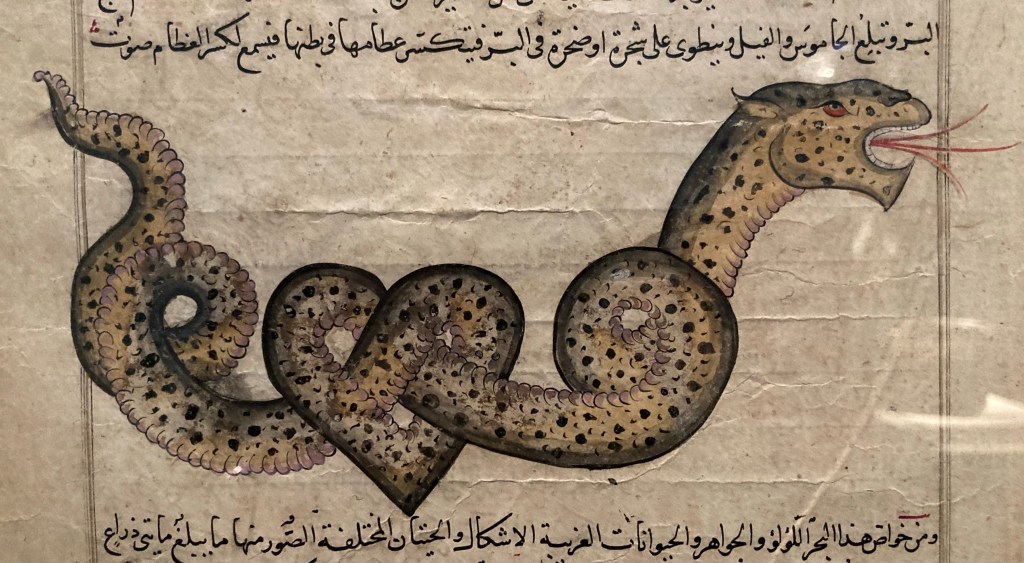 البرّ وتبلع الجاموس والفيل وينطوى على شجرة او صخرة فى البرّ فيتكسّر عظامها فى بطنها فيسمع لكسر العظام صوت
ومن خواص هذا البحر اللؤلؤ والجواهر والحيوانات الغريبة الاشكال والحيتان المختلفة الصّور منها ما يبلغ مايتى ذراع